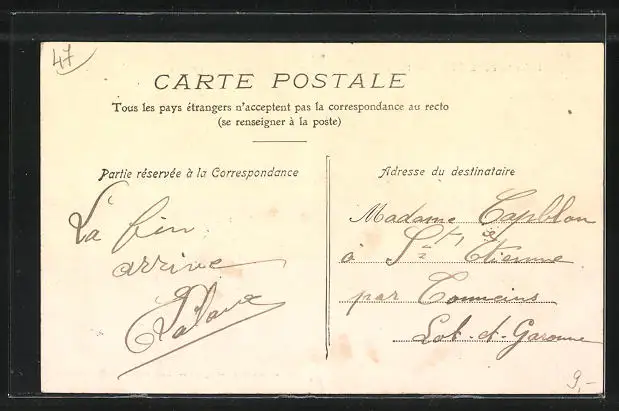 47
CARTE POSTALE
Tous les pays étrangers n'acceptent pas la correspondance au recto
(se renseigner à la poste)
Partie réservée à la Correspondance
La fin
arrive
Adresse du destinataire
Madame Capblan
à St Etienne
par Tonneins
Lot-et-Garonne
9,-